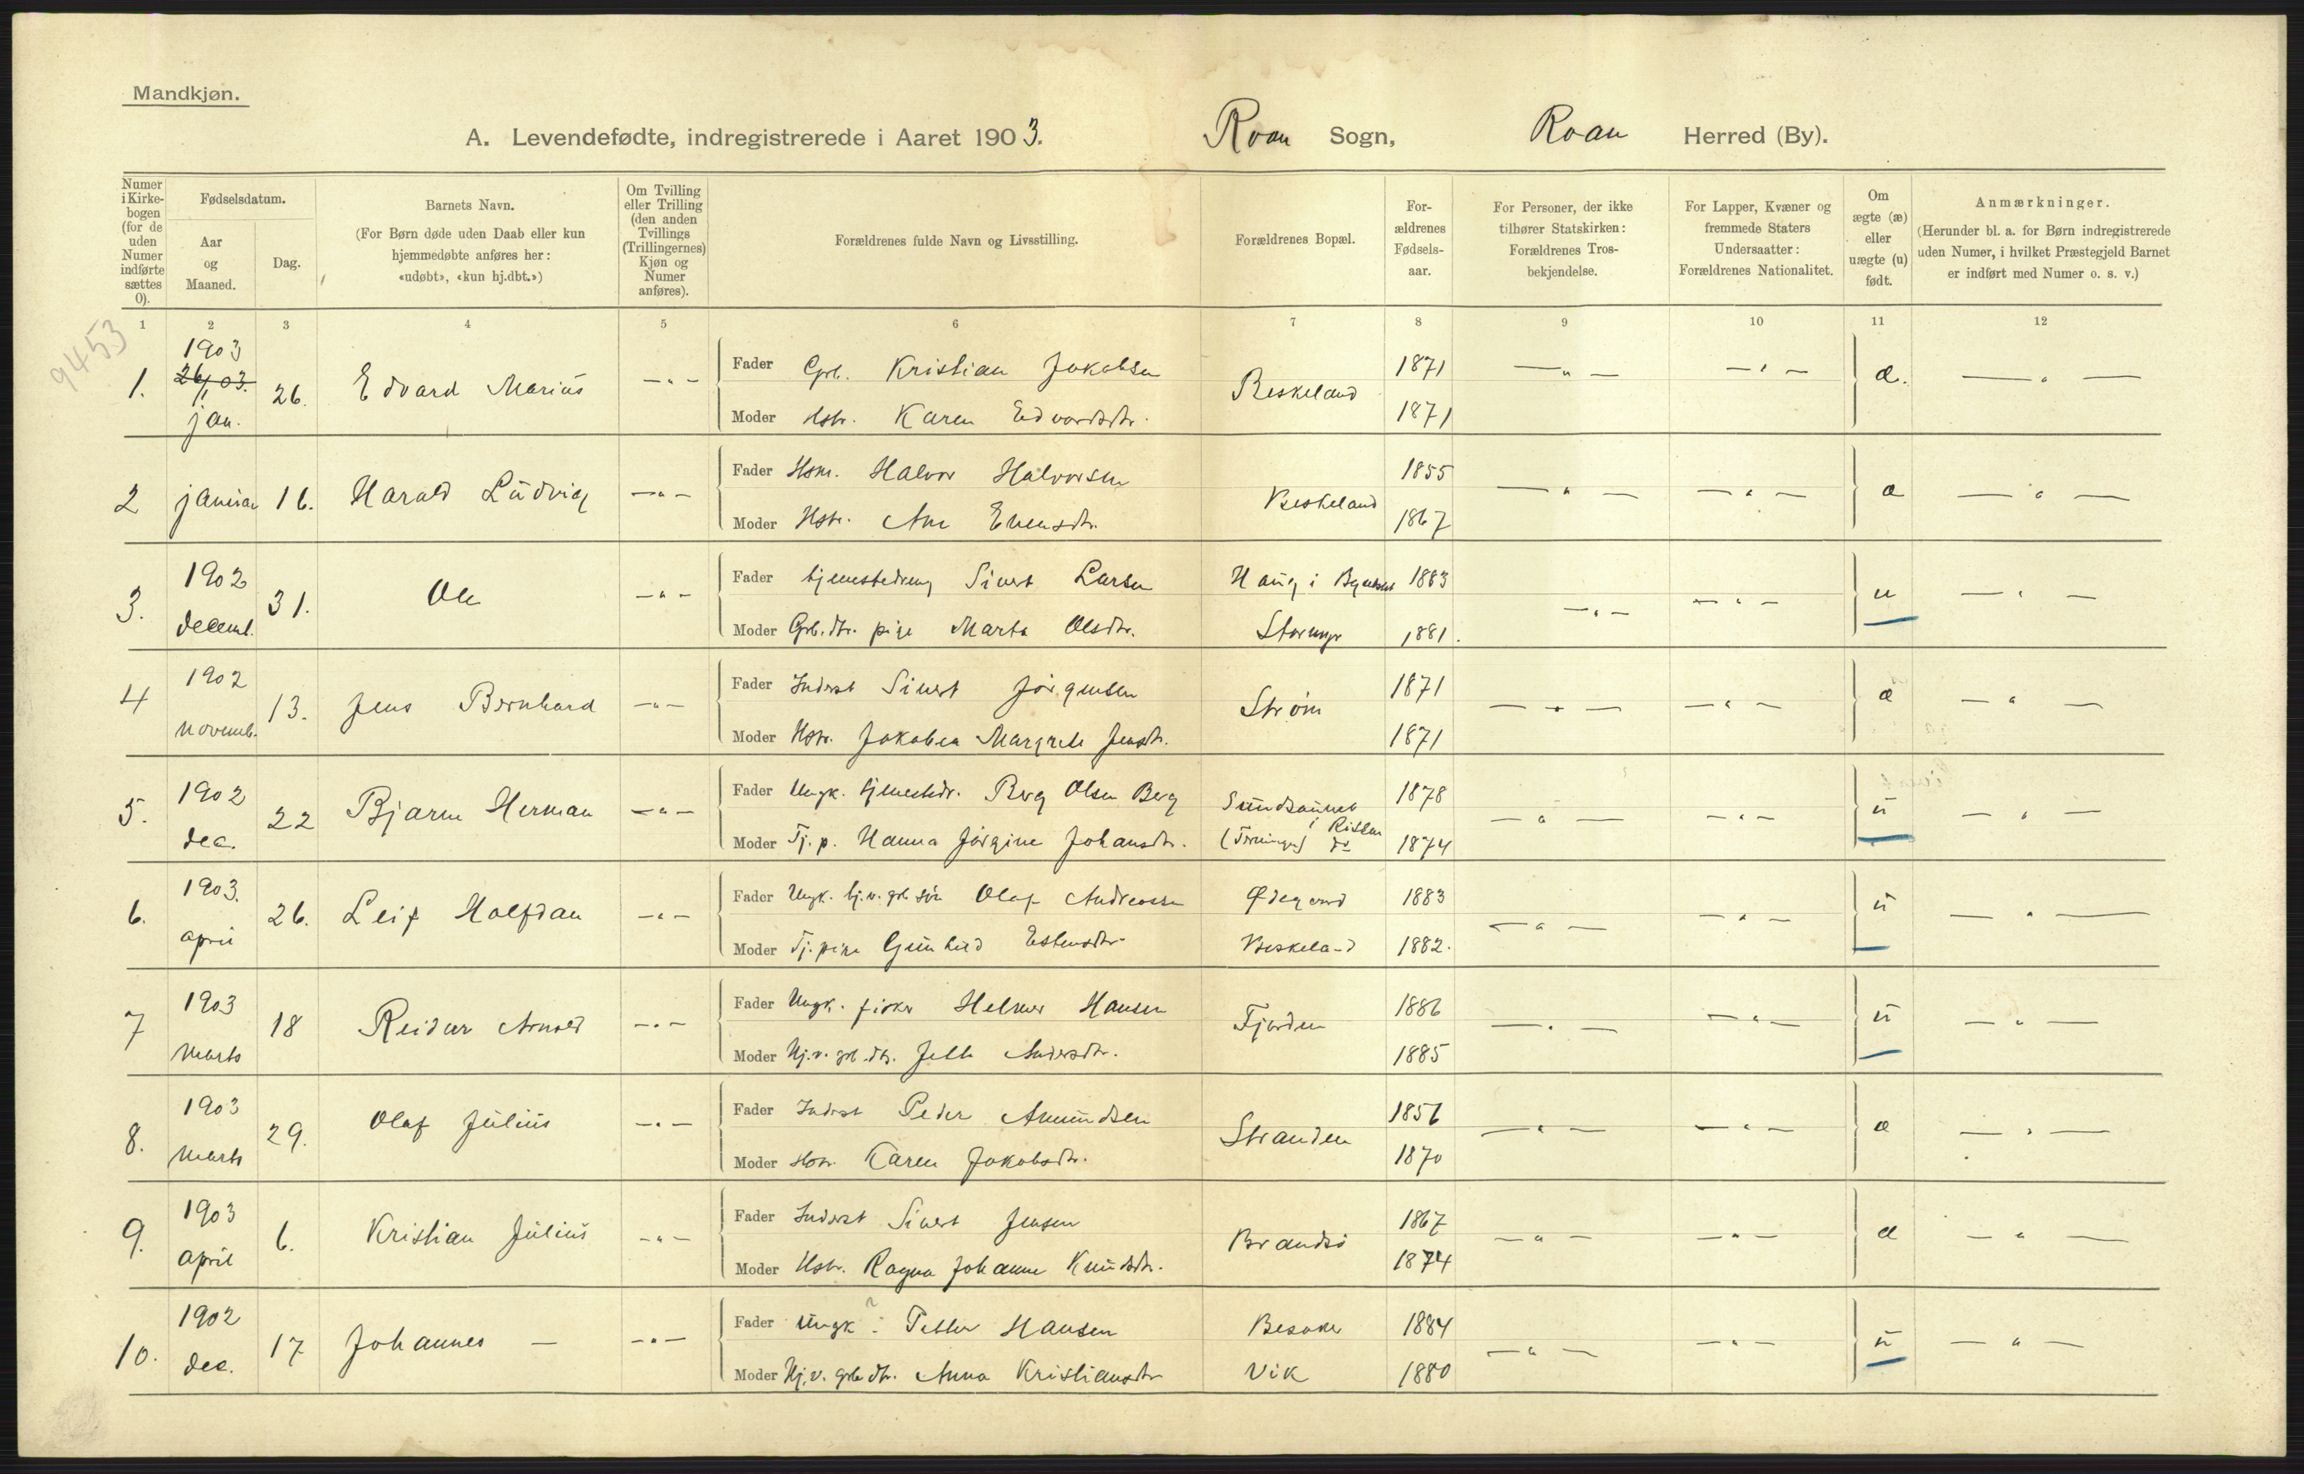 Mandkjøn.
A. Levendefødte, indregistrerede i Aaret 1903. Roan Sogn, Roan Herred (By).
Numer i Kirkebogen (for de uden Numer indførte sættes 0).
Fødselsdatum.
Aar og Maaned.
Dag.
Barnets Navn.
(For Børn døde uden Daab eller kun hjemmedøbte anføres her: «udøbt», «kun hj.dbt.»)
Om Tvilling eller Trilling (den anden Tvillings (Trillingernes) Kjøn og Numer anføres).
Forældrenes fulde Navn og Livsstilling.
Forældrenes Bopæl.
Forældrenes Fødselsaar.
For Personer, der ikke tilhører Statskirken: Forældrenes Trosbekjendelse.
For Lapper, Kvæner og fremmede Staters Undersaatter: Forældrenes Nationalitet.
Om ægte (æ) eller uægte (u) født.
Anmærkninger.
(Herunder bl. a. for Børn indregistrerede uden Numer, i hvilket Præstegjeld Barnet er indført med Numer o. s. v.)
1 2 3 4 5 6 7 8 9 10 11 12
9453
1. 1903 26/1 03. jan. 26. Edvard Marius —„— Fader Grb. Kristian Jakobsen Beskeland 1871 —„— —„— æ. —„—
Moder Hstr. Karen Edvardsdtr. 1871
2 januar 16. Harald Ludvig —„— Fader Hsm. Halvor Halvorsen Beskeland 1855 —„— —„— æ —„—
Moder Hstr. Ane Evensdtr. 1867
3. 1902 decemb. 31. Ole —„— Fader tjenestedreng Sivert Larsen Haug i Bynesset 1883 —„— —„— u —„—
Moder Grb.dtr. pige Marta Olsdtr. Stormyr 1881.
4 1902 novemb. 13. Jens Bernhard —„— Fader Inderst Sivert Jørgensen Strøm 1871 —„— —„— æ —„—
Moder Hstr. Jakobea Margrete Jensdtr. 1871
5. 1902 dec. 22 Bjarne Herman —„— Fader Ungk. tjenestedr. Berg Olsen Berg Sundsaunet i Rissen 1878 —„— —„— u —„—
Moder Tj. p. Hanna Jørgine Johansdtr. do 1874
6. 1903. april 26. Leif Halfdan —„— Fader Ungk. hj.v. grb søn Olaf Andreassen Ødegaard 1883 —„— —„— u —„—
Moder Tj. pige Gunhild Estensdtr Beskeland 1882.
7 1903 Marts 18 Reidar Arnold —„— Fader Ungk. fisker Helmer Hansen Fjorden 1886 —„— —„— u —„—
Moder Hj.v. grb.dtr. Jette Andersdtr. 1885
8. 1903 Marts 29. Olaf Julius —„— Fader Inderst Peder Amundsen Stranden 1856 —„— —„— æ —„—
Moder Hstr. Karen Jakobsdtr. 1870
9. 1903 april 6. Kristian Julius —„— Fader Inderst Sivert Jensen Brandsø 1867 —„— —„— æ —„—
Moder Hstr. Ragna Johanne Knudsdtr. 1874
10. 1902 dec. 17 Johannes — —„— Fader Ungk. ? Petter Hansen Besaker 1884 —„— —„— u —„—
Moder Hj.v. grb dtr. Anna Kristiansdtr Vik 1880